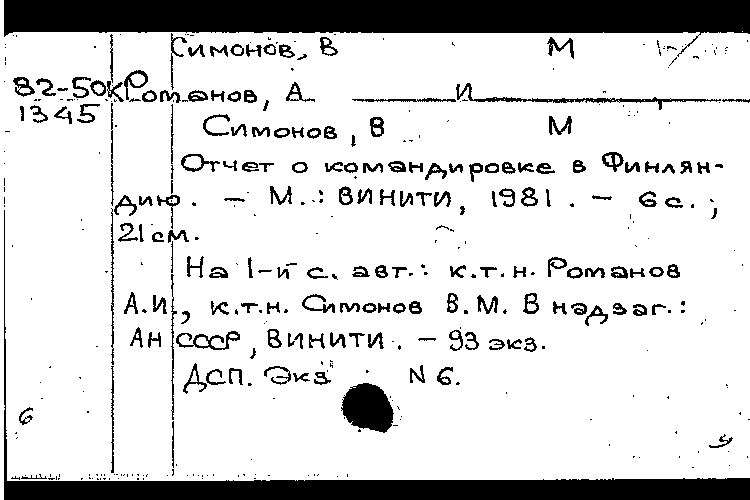 Симонов, В М
82-50к Романов, А И
1345
Симонов, В М
Отчет о командировке в Финлян-
дию. - М.: ВИНИТИ, 1981. - 6 с.;
21 см.
На 1-й с. авт.: к.т.н. Романов
А.И., к.т.н. Симонов В.М. В надзаг.:
АН СССР, ВИНИТИ. - 93 экз.
ДСП. Экз N 6.
6